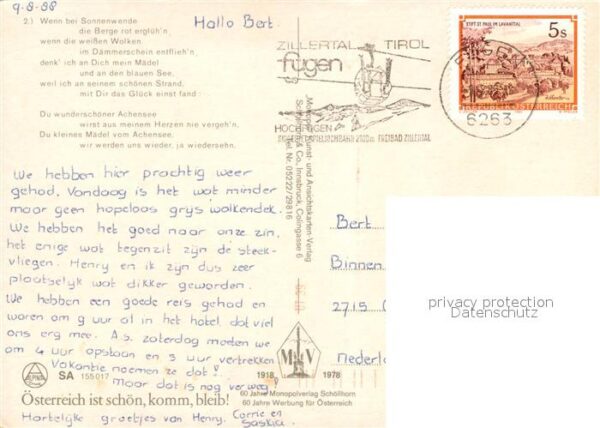 9-8-88
Hallo Bert.
2.) Wenn bei Sonnenwende
die Berge rot erglüh'n,
wenn die weißen Wolken
im Dämmerschein entflieh'n
denk' ich an Dich mein Mädel
und an den blauen See,
weil ich an seinem schönen Strand,
mit Dir das Glück einst fand:
Du wunderschöner Achensee
wirst aus meinem Herzen nie vergeh'n,
Du kleines Mädel vom Achensee,
wir werden uns wieder, ja wiedersehn.
ZILLERTAL TIROL
fügen
HOCHFÜGEN
FREIBAD ZILLERTAL
STIFT ST. PAUL IM LAVANTTAL
5s
REPUBLIK ÖSTERREICH
6263
We hebben hier prachtig weer
gehad. Vandaag is het wat minder
maar geen hopeloos grijs wolkendek.
We hebben het goed naar onze zin,
het enige wat tegenzit zijn de steek-
vliegen. Henry en ik zijn dus zeer
plaatselijk wat dikker geworden.
We hebben een goede reis gehad en
waren om 9 uur al in het hotel dat viel
ons erg mee. A.s. zaterdag moeten we
om 4 uur opstaan en 5 uur vertrekken
Vakantie noemen ze dat!
Maar dat is nog ver weg!
Hartelijke groetjes van Henry, Corrie en
Saskia
Kunst- und Ansichtskarten-Verlag
Schöllhorn & Co., Innsbruck, Colingasse 6
Tel. Nr. 05222/29816
Bert
Binnen
2715
Nederl
privacy protection
Datenschutz
ALPINA
SA 155017
MV
1918 1978
Österreich ist schön, komm, bleib!
60 Jahre Monopolverlag Schöllhorn
60 Jahre Werbung für Österreich